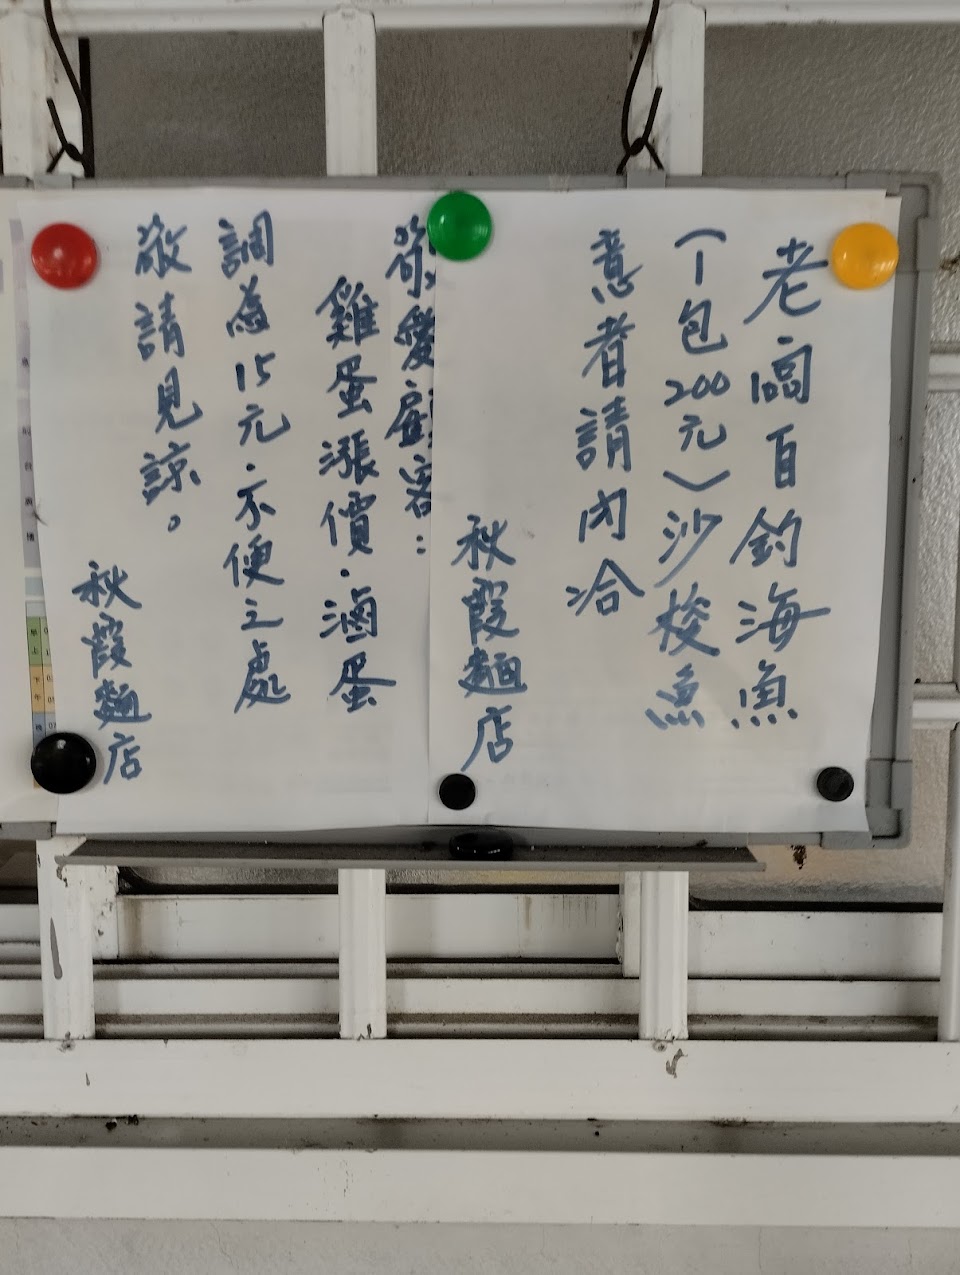 老高自釣海魚
(一包200元)沙梭魚
意者請內洽
秋霞麵店
敬愛顧客:
雞蛋漲價.滷蛋
調為15元.不便之處
敬請見諒。
秋霞麵店